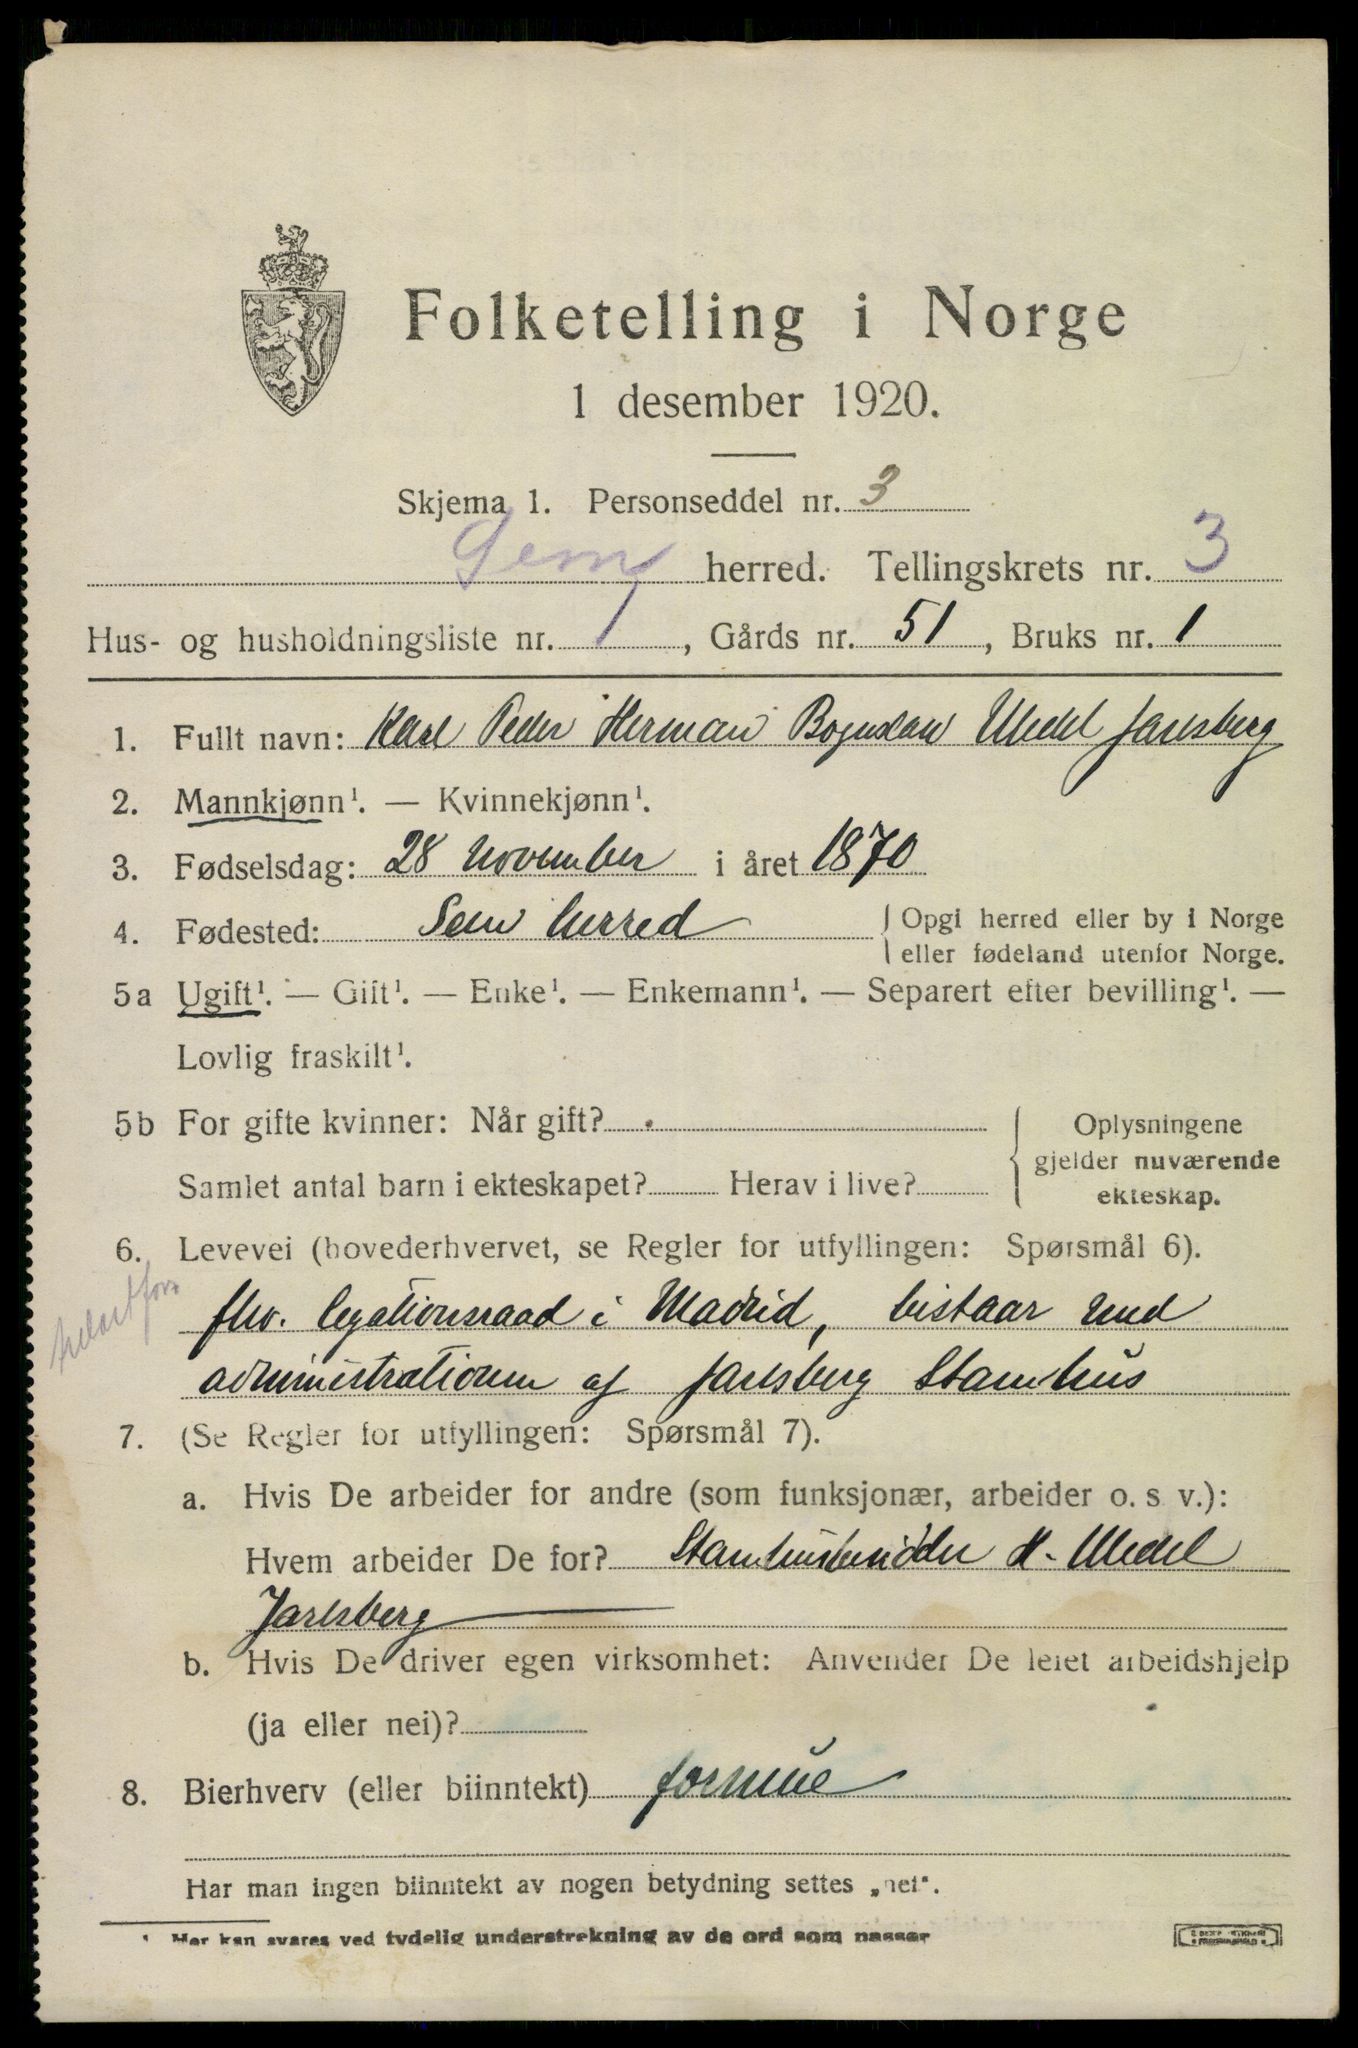 Folketelling i Norge
1 desember 1920.
Skjema 1. Personseddel nr. 3
Sem herred. Tellingskrets nr. 3
Hus- og husholdningsliste nr. 1, Gårds nr. 51, Bruks nr. 1
1. Fullt navn: Karl Peder Herman Bogislaw Wedel Jarlsberg
2. Mannkjønn¹. — Kvinnekjønn¹.
3. Fødselsdag: 28 november i året 1870
4. Fødested: Sem herred
Opgi herred eller by i Norge
eller fødeland utenfor Norge.
5a Ugift¹. — Gift¹. — Enke¹. — Enkemann¹. — Separert efter bevilling¹. —
Lovlig fraskilt¹.
5b For gifte kvinner: Når gift?
Samlet antal barn i ekteskapet? Herav i live?
Oplysningene
gjelder nuværende
ekteskap.
6. Levevei (hovederhvervet, se Regler for utfyllingen: Spørsmål 6).
fhv. legationsraad i Madrid, bistaar ved
administrationen af Jarlsberg Stamhus
7. (Se Regler for utfyllingen: Spørsmål 7).
a. Hvis De arbeider for andre (som funksjonær, arbeider o. s v.):
Hvem arbeider De for? Stamhusbesidder H. Wedel
Jarlsberg
b. Hvis De driver egen virksomhet: Anvender De leiet arbeidshjelp
(ja eller nei)?
8. Bierhverv (eller biinntekt) formue
Har man ingen biinntekt av nogen betydning settes „nei“.
¹ Her kan svares ved tydelig understrekning av de ord som passer